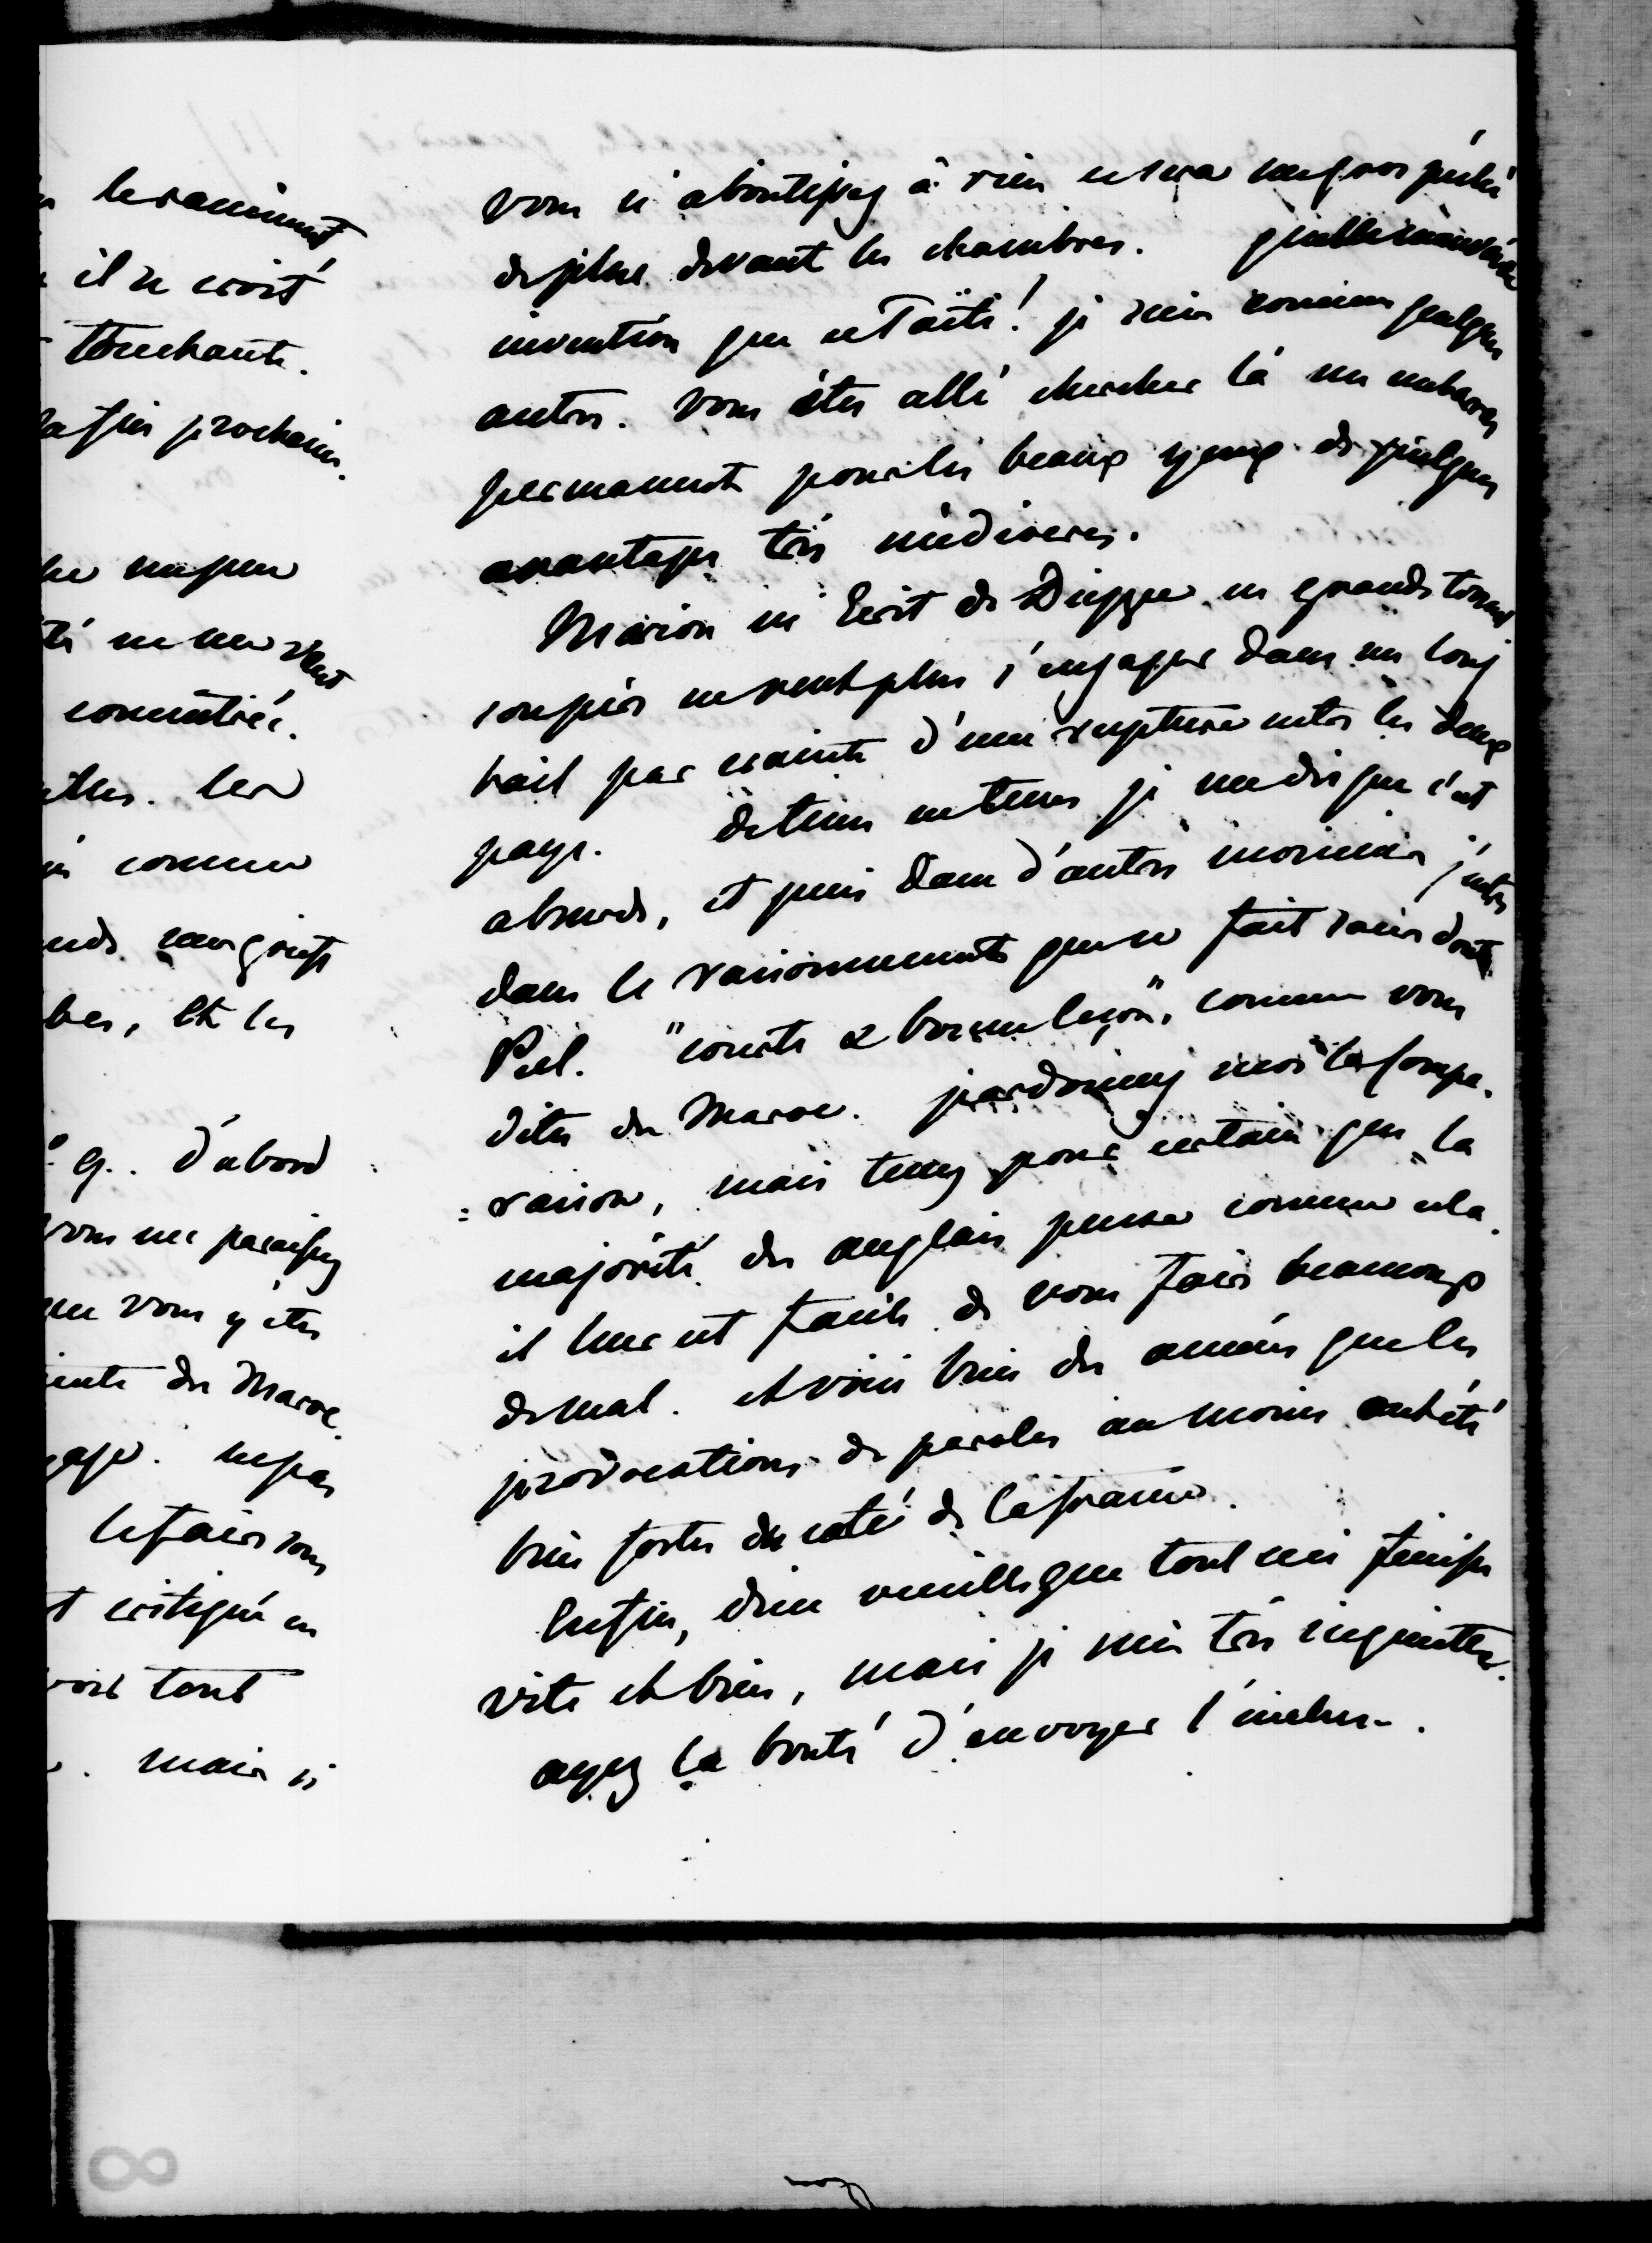 le ranimant
il se croit
touchante.
la fin prochaine.
un peu
té ne me veut
comité.
les
comme
un goust
bes, et les
g. d'abord
vous me paraissez
que vous y êtes
du Maroc.
le faire sous
critiqué en
voit tout
mais si
vous n'aboutissez à rien ce sera un gros péché
de plus devant les chambres. quelle
invention que ce Taïti! je suis comme quelques
autres. vous êtes allé chercher là un embarras
permanent pour les beaux yeux de quelques
avantages très médiocres.
Marion m'écrit de Dieppe en grands tourmens
son père ne veut plus s'engager dans un long
bail par crainte d'une rupture entre les deux
pays. de tems en tems je me dis que c'est
absurde, et puis dans d'autres momens j'entre
dans le raisonnement que se fait sans doute
Peel. "courte & bonne leçon", comme vous
dites du Maroc. pardonnez moi la compa-
=raison, mais tenez pour certain que la
majorité des anglais pense comme cela.
il leur est facile de vous faire beaucoup
de mal. et voici bien des années que les
provocations de paroles au moins ont été
bien fortes du coté de la france.
Enfin, dieu veuille que tout ceci finisse
vite et bien, mais je suis très inquiète.
ayez la bonté d'envoyer l'incluse.